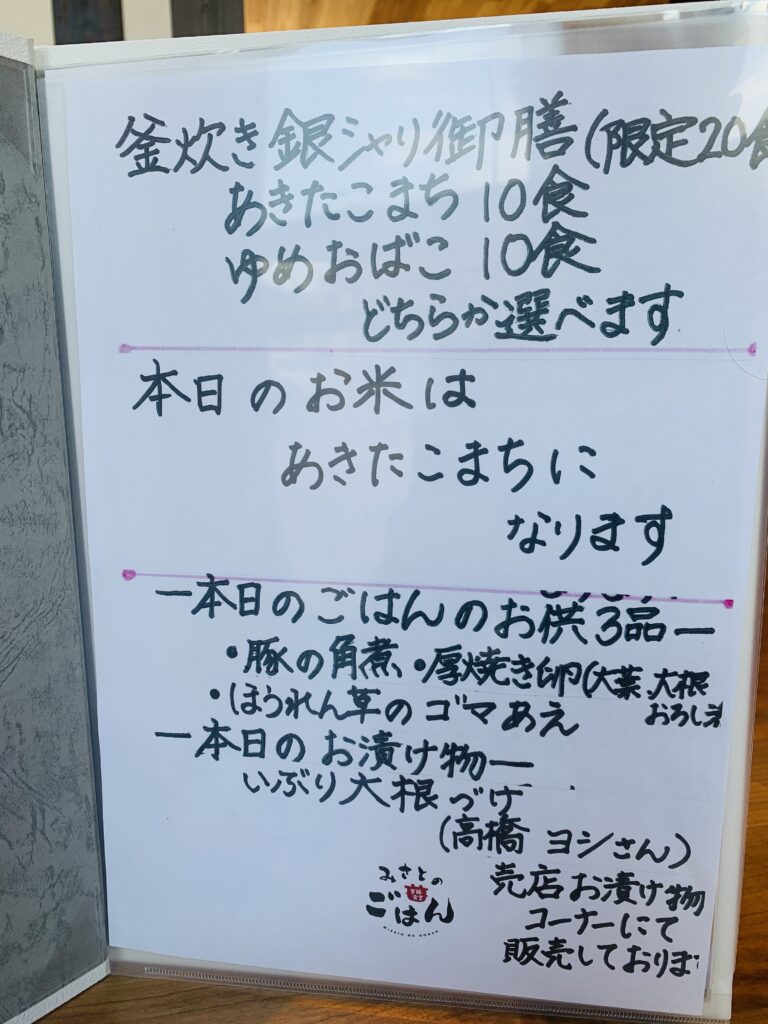 釜炊き 銀シャリ御膳(限定20食
あきたこまち 10食
ゆめおばこ 10食
どちらか選べます
本日のお米は
あきたこまちに
なります
ー本日のごはんのお供3品ー
・豚の角煮 ・厚焼き卵(大葉、大根
おろし
・ほうれん草のゴマあえ
ー本日のお漬け物ー
いぶり大根づけ
(高橋 ヨシさん)
売店お漬け物
コーナーにて
販売しております
みさとの
ごはん
MISATO NO GOHAN